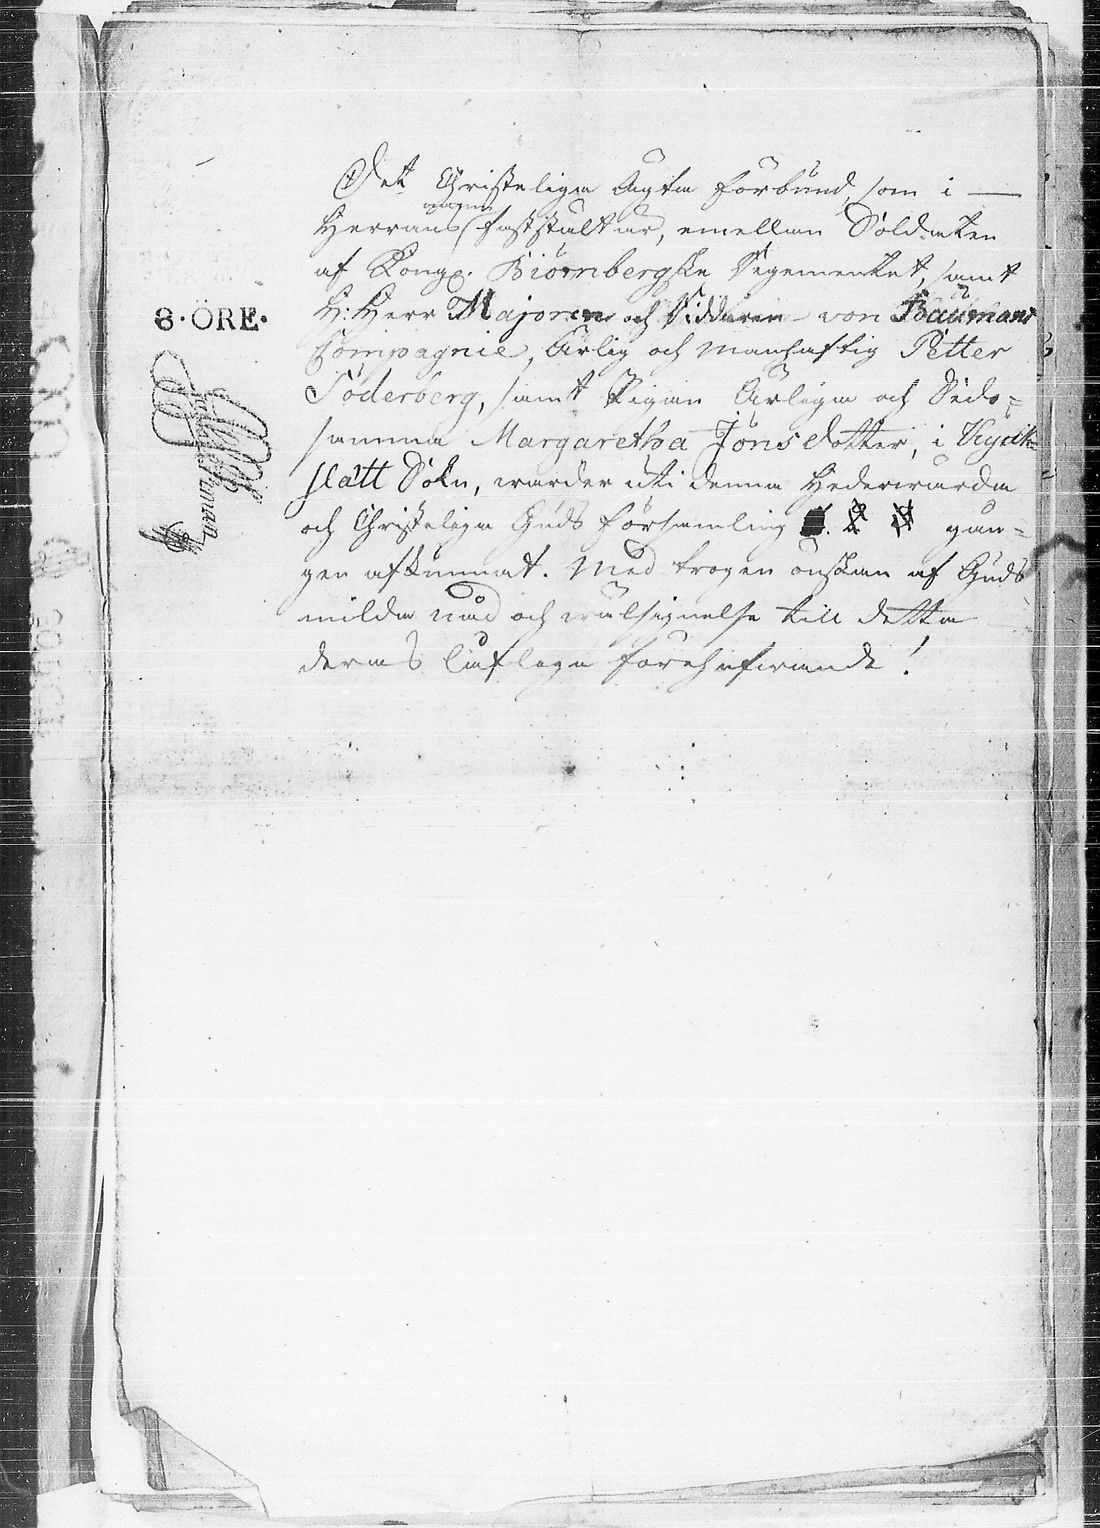 Det Christeliga Ägta förbund, som i —
Herrans namn faststält är, emellan Soldaten
af Kongl. Biörnbergske Regementet, samt
H: Herr Majoren och Riddaren von Baumans
8·ÖRE·
Compagnie, Ärlig och Manhaftig Petter
Söderberg, samt Pigan Ärliga och Sedo=
samma Margaretha Jönsdotter, i Kyrck
slätt Sokn, warder uti denna Hederwärda
och Christeliga Guds församling gån=
gen afkunnat. Med trogen önskan af Guds
milda nåd och wälsignelse till detta
deras liufliga förehafwande!